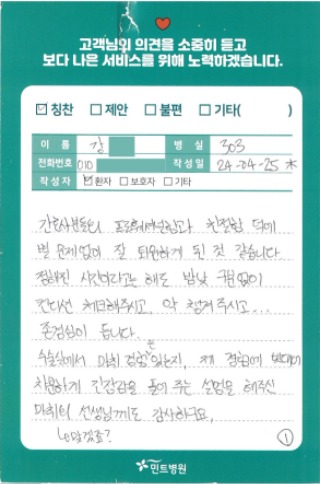 고객님의 의견을 소중히 듣고
보다 나은 서비스를 위해 노력하겠습니다.
☑ 칭찬 □ 제안 □ 불편 □ 기타( )
이 름 김 병 실 303
전화번호 010 작성일 24-04-25 木
작성자 ☑환자 □ 보호자 □ 기타
간호사분들의 프로페셔널함과 친절함 덕에
별 문제없이 잘 퇴원하게 된 것 같습니다
정해진 시간이라고는 해도 밤낮 구분없이
컨디션 체크해주시고, 약 챙겨주시고...
존경심이 듭니다.
수술실에서 마취 경험은 있는지, 제 경험에
차분하게 긴장감을 풀어 주는 설명을 해주신
마취의 선생님께도 감사하구요,
맞겠죠?
①
민트병원